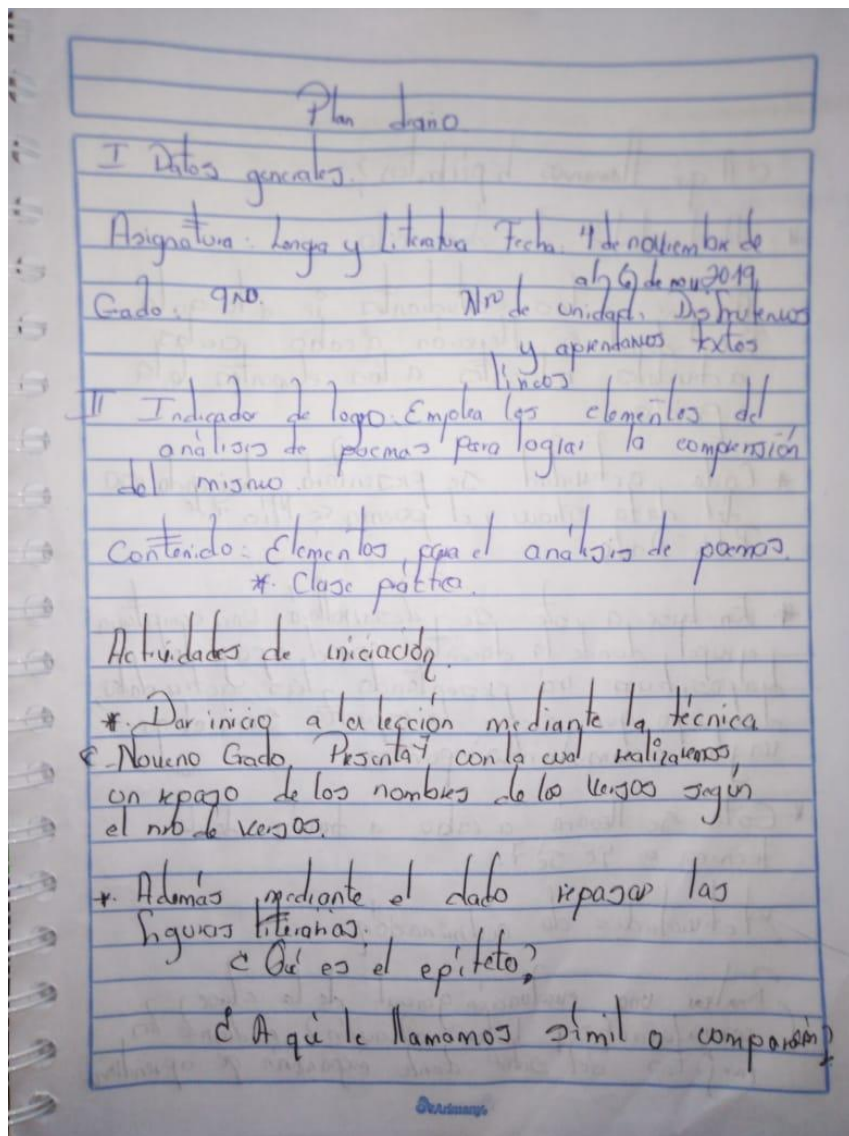 Plan diario
I Datos generales.
Asignatura: Lengua y Literatura Fecha: 4 de noviembre de
al 6 de nov 2019
Grado: 9no. Nro de unidad. Disfrutemos
y aprendamos textos
líricos
II Indicador de logro: Emplea los elementos del
análisis de poemas para lograr la comprensión
del mismo.
Contenido: Elementos para el análisis de poemas.
*. Clase páctica.
Actividades de iniciación.
*. Dar inicio a la lección mediante la técnica
Noveno Grado, Presenta? con la cual realizaremos
un repaso de los nombres de los versos según
el nro de versos.
*. Además mediante el dado repasar las
figuras literarias.
¿Qué es el epíteto?
¿A qué le llamamos símil o comparación?